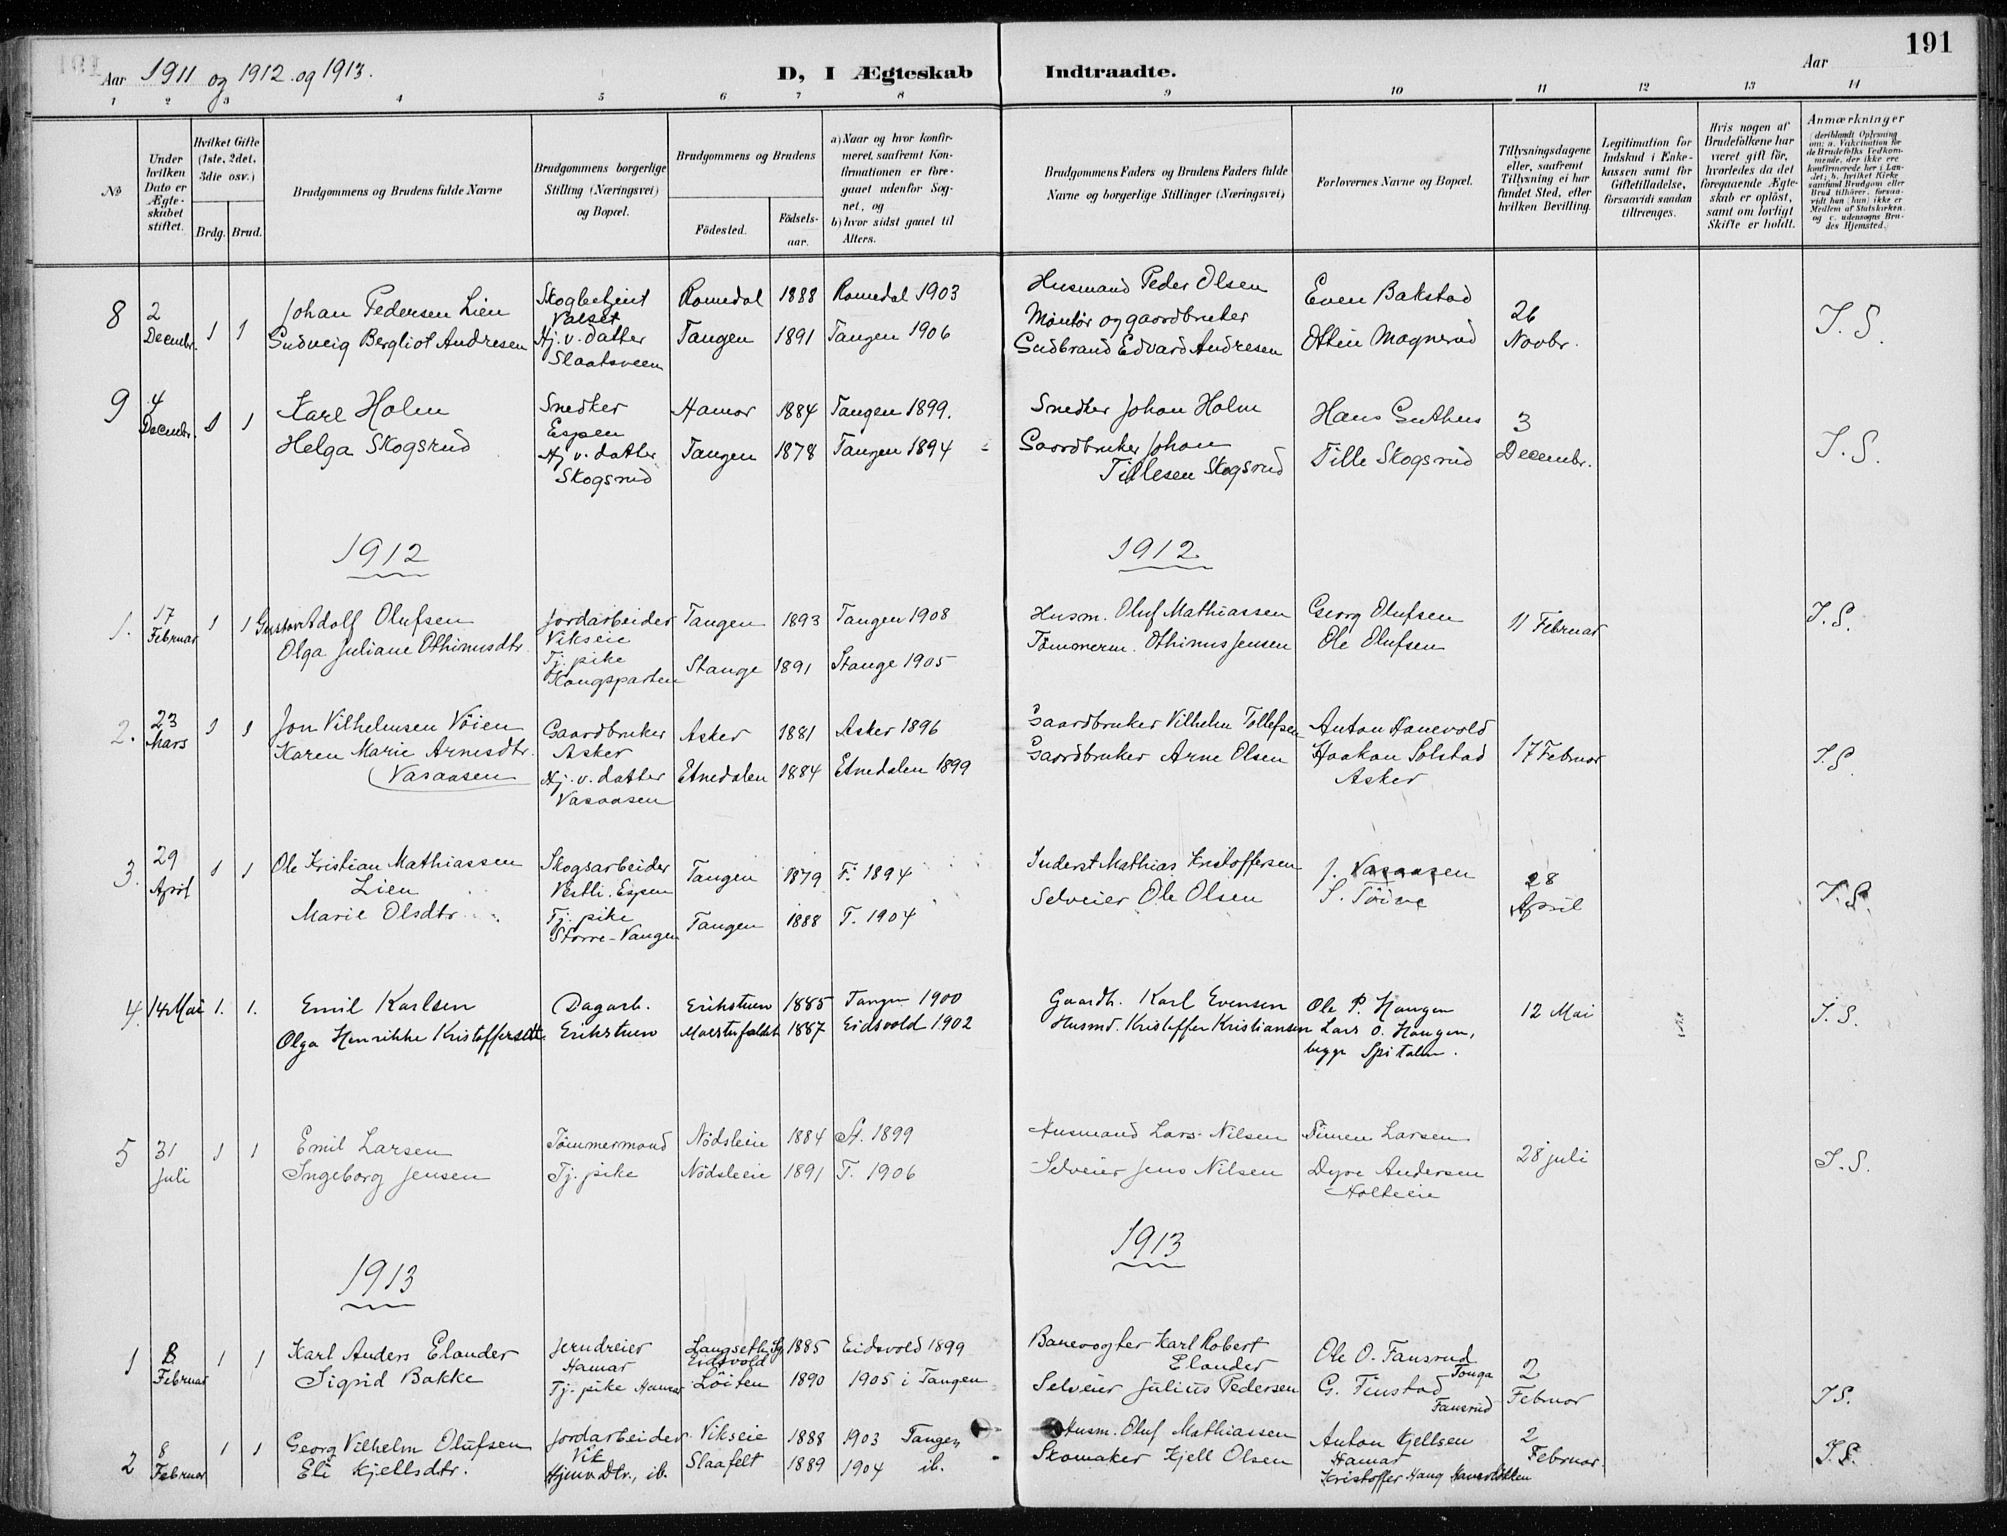 191
Aar 1911 og 1912. og 1913.
D, I Ægteskab Indtraadte.
Aar
1 2 3 4 5 6 7 8 9 10 11 12 13 14
No
Under hvilken Dato er Ægteskabet stiftet.
Hvilket Gifte (1ste, 2det, 3die osv.)
Brdg. Brud.
Brudgommens og Brudens fulde Navne
Brudgommens borgerlige Stilling (Næringsvei) og Bopæl.
Brudgommens og Brudens
Födested.
Födsels-aar.
a) Naar og hvor konfirmeret, saafremt Konfirmationen er foregaaet udenfor Sognet, og b) hvor sidst gaaet til Alters.
Brudgommens Faders og Brudens Faders fulde Navne og borgerlige Stillinger (Næringsvei)
Forlovernes Navne og Bopæl.
Tillysningsdagene eller, saafremt Tillysning ei har fundet Sted, efter hvilken Bevilling.
Legitimation for Indskud i Enkekassen samt for Giftetilladelse, forsaavidt saadan tiltrænges.
Hvis nogen af Brudefolkene har været gift för, hvorledes da det foregaaende Ægteskab er oplöst, samt om lovligt Skifte er holdt.
Anmærkninger (deriblandt Oplysning om: a. Vakcination for de Brudefolks Vedkommende, der ikke ere konfirmerede her i Landet; b. hvilket Kirkesamfund Brudgom eller Brud tilhörer, forsaavidt han (hun) ikke er Medlem af Statskirken, og c. udensogns Brudes Hjemsted.)
8 2 Decembr. 1 1 Johan Pedersen Lien Skogbetjent Valset Romedal 1888 Romedal 1903 Husmand Peder Olsen Even Bakstad 26 Novbr. I. S.
Gudveig Bergliot Andresen Hj. v. datter Slaatsveen Tangen 1891 Tangen 1906 Montør og gaardbruker Gudbrand Edvard Andresen Otten Magnerud
9 4 Decembr. 1 1 Karl Holm Snedker Espen Hamar 1884 Tangen 1899. Snedker Johan Holm Hans Guthus 3 Decembr. I. S.
Helga Skogsrud Hj. v. datter Skogsrud Tangen 1878 Tangen 1894 Gaardbruker Johan Tillesen Skogsrud Tille Skogsrud
1912 1912
1. 17 Februar 1 1 Gustav Adolf Olufsen Jordarbeider Vikseie Tangen 1893 Tangen 1908 Husm. Oluf Mathiassen Georg Olufsen 11 Februar I. S.
Olga Juliane Othinusdtr. Tj. pike Kongsparten Stange 1891 Stange 1905 Tømmerm. Othinus Jensen Ole Olufsen
2. 23 Mars 1 1 Jon Vilhelmsen Vöien Gaardbruker Asker Asker 1881 Asker 1896 Gaardbruker Vilhelm Tollefsen Anton Hanevold 17 Februar I. S.
Karen Marie Arnesdtr. Vasaasen Hj. v. datter Vasaasen Etnedalen 1884 Etnedalen 1899 Gaardbruker Arne Olsen Haakon Solstad Asker
3. 29 April 1 1 Ole Kristian Mathiassen Lien Skogsarbeider Vestli. Espen Tangen 1879 T. 1894 Inderst Mathias Kristoffersen J. Vasaasen 28 April I. S.
Marie Olsdtr. Tj. pike Storre-Vangen Tangen 1888 T. 1904 Selveier Ole Olsen S. Töive
4. 14 Mai 1. 1. Emil Karlsen Dagarb. Erikstuen 1885 Tangen 1900 Gaardb. Karl Evensen Ole P. Haugen 12 Mai I. S.
Olga Henrikke Kristoffersdtr. Erikstuen 1887 Eidsvold 1902 Husmd. Kristoffer Kristiansen Lars O. Haugen, begge Spitalen.
5 31 Juli 1 1 Emil Larsen Tömmermand Nödsleie 1884 St. 1899 Husmand Lars Nilsen Simen Larsen 28 juli I. S.
Ingeborg Jensen Tj. pike Nödsleie 1891 T. 1906 Selveier Jens Nilsen Dyre Andersen Holteeie
1913 1913
1 8 Februar 1 1 Karl Anders Elander Jerndreier Hamar Langseth Eidsvold 1885 Eidsvold 1899 Banevogter Karl Robert Elander Ole O. Fansrud Tonga 2 Februar I S.
Sigrid Bakke Tj. pike Hamar Löiten 1890 1905 i Tangen Selveier Julius Pedersen G. Finstad Fansrud
2 8 Februar 1 1 Georg Vilhelm Olufsen Jordarbeider Vik Vikseie 1888 1903 Tangen Husm. Oluf Mathiassen Anton Kjellsen Hamar 2 Februar I. S.
Eli Kjellsdtr. Hjemv. Dtr., ib. Slaafelt 1889 1904 ib. Skomaker Kjell Olsen Kristoffer Haug